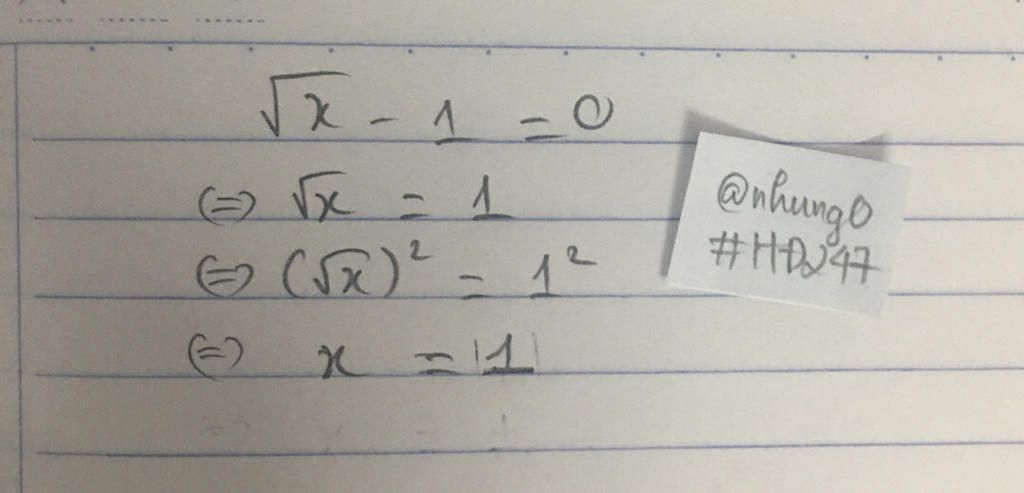 √x - 1 = 0
(=) √x = 1
(=) (√x)² = 1²
(=) x = |1|
@nhung0
#HĐ247